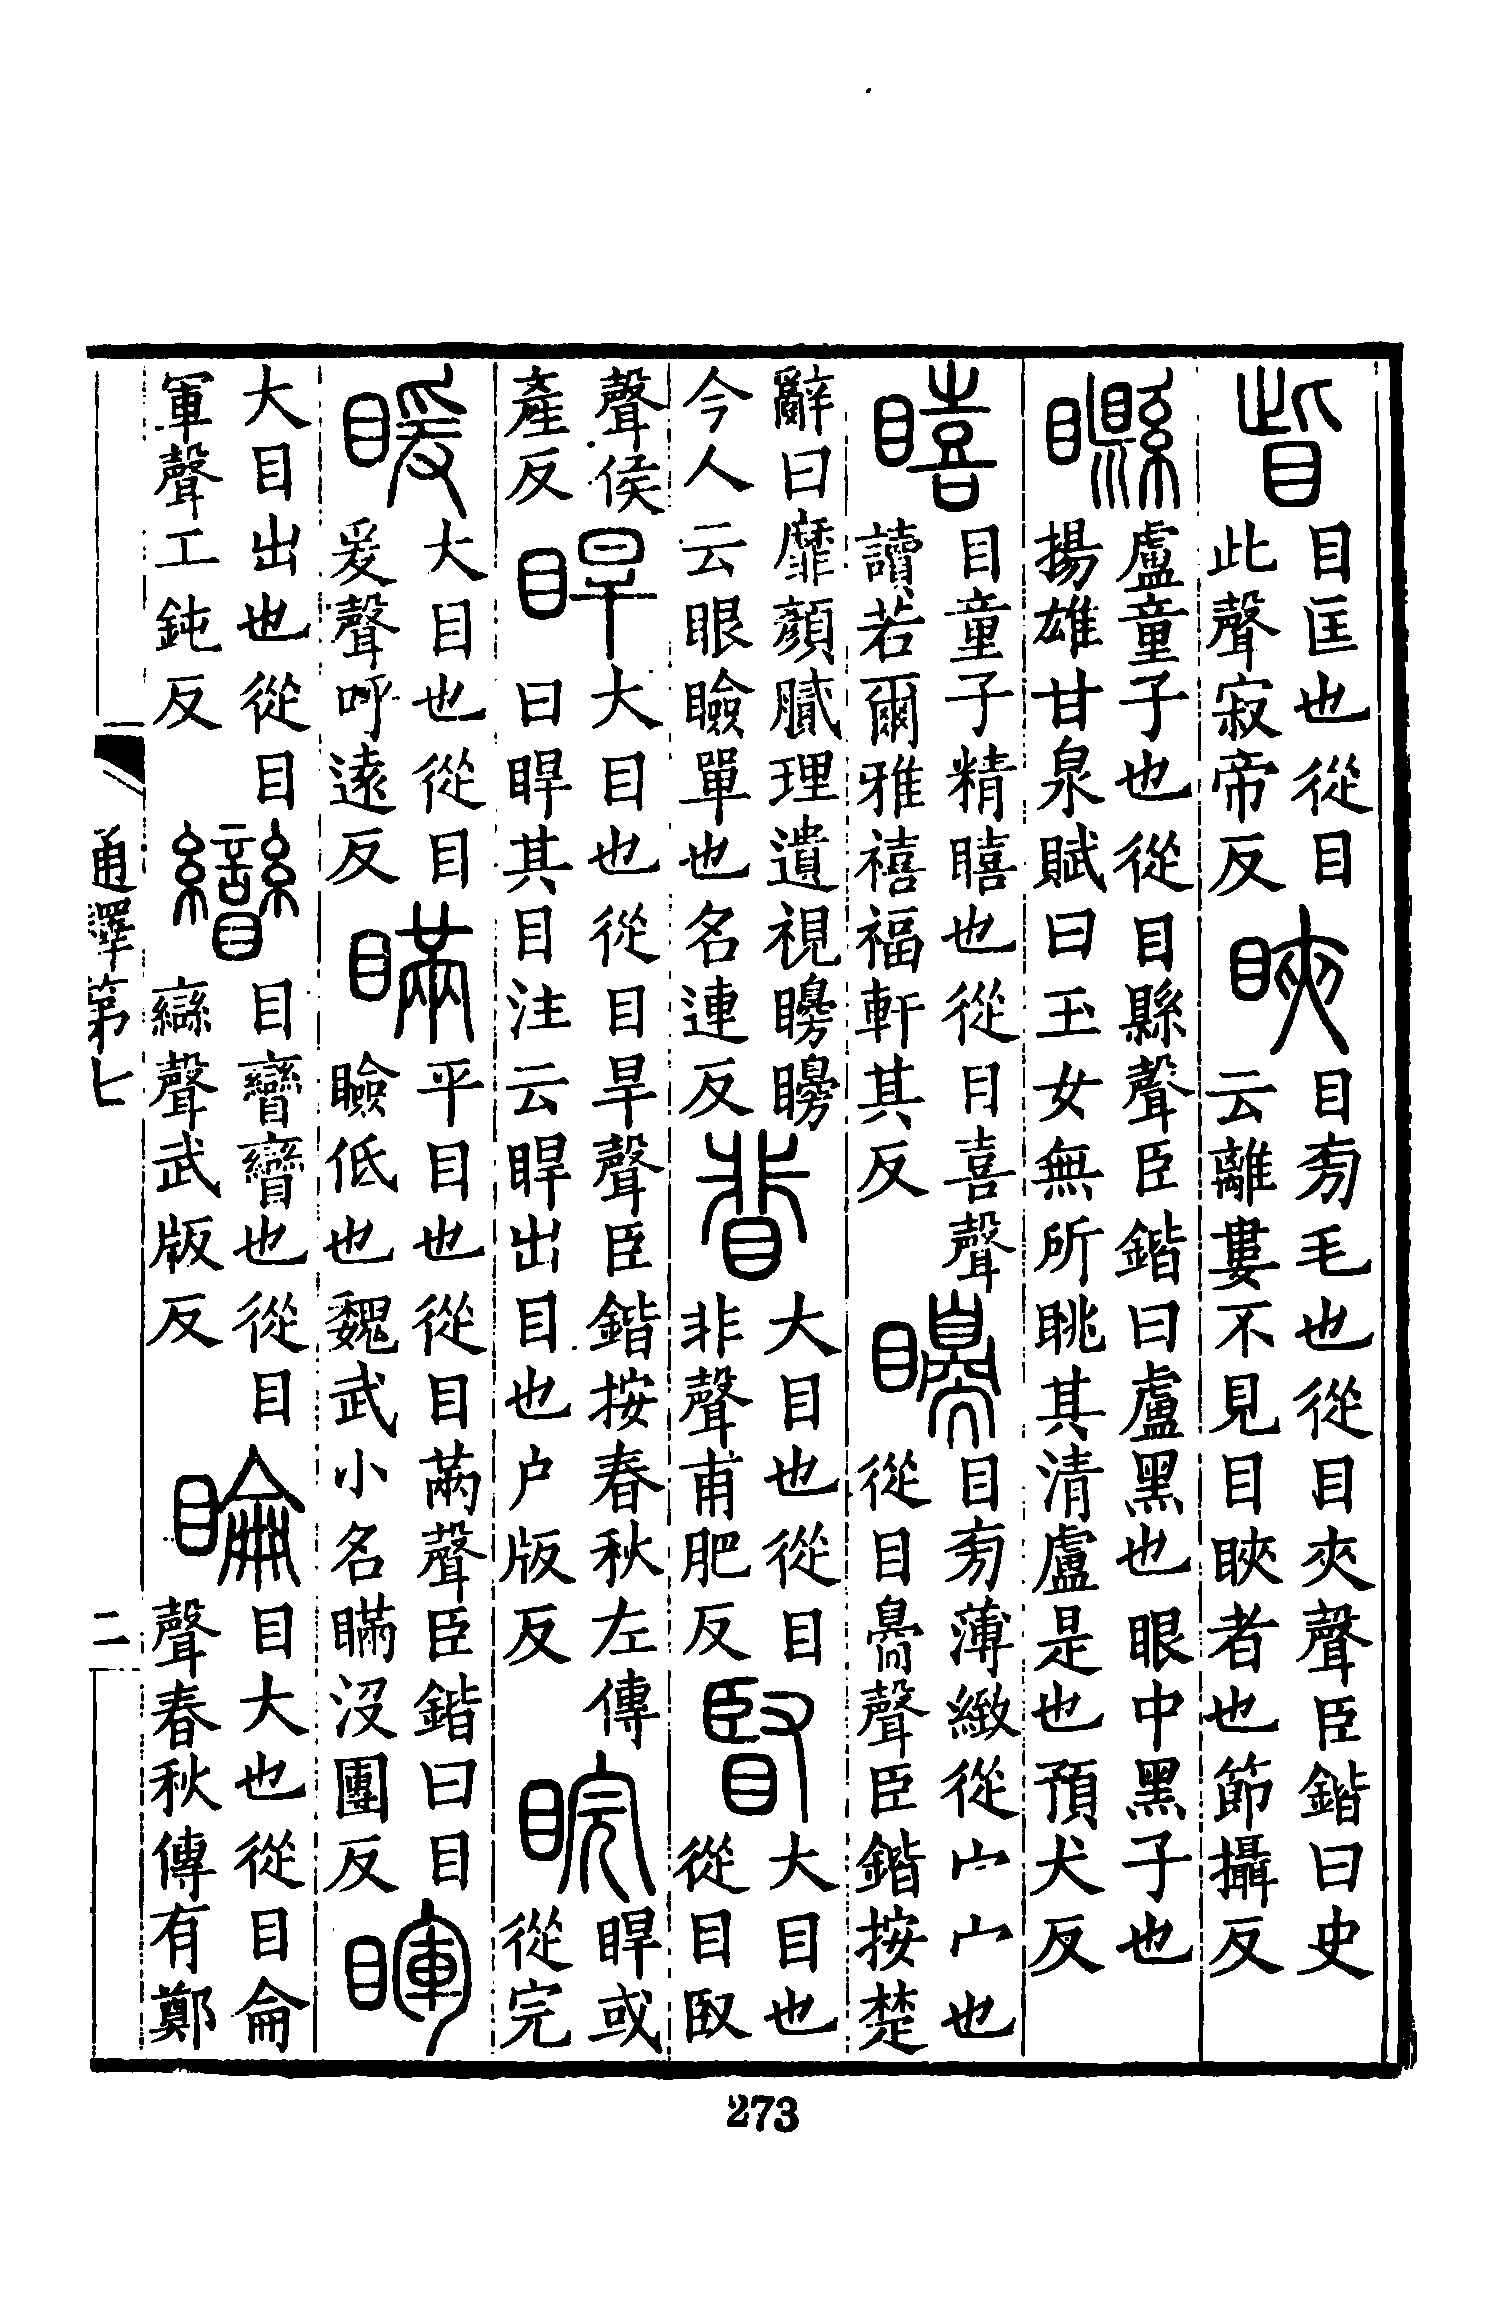 眥
目匡也從目
此聲寂帝反
䀹
目㫄毛也從目夾聲臣鍇曰史
云離婁不見目䀹者也節攝反
矎
盧童子也從目縣聲臣鍇曰盧黑也眼中黑子也
揚雄甘泉賦曰玉女無所眺其清盧是也預犬反
瞦
目童子精瞦也從目喜聲
讀若爾雅禧福軒其反
矏
目㫄薄緻從宀宀也
從目臱聲臣鍇按楚
辭曰靡顏膩理遺視矏矏
今人云眼瞼單也名連反
䀟
大目也從目
非聲甫肥反
䁂
大目也
從目臤
聲侯
產反
睅
大目也從目旱聲臣鍇按春秋左傳
曰睅其目注云睅出目也户版反
睆
睅或
從完
䁔
大目也從目
爰聲呼遠反
瞞
平目也從目㒼聲臣鍇曰目
瞼低也魏武小名瞞沒團反
睴
大目出也從目
軍聲工鈍反
矕
目矕矕也從目
䜌聲武版反
睔
目大也從目侖
聲春秋傳有鄭
通釋第七
二
273